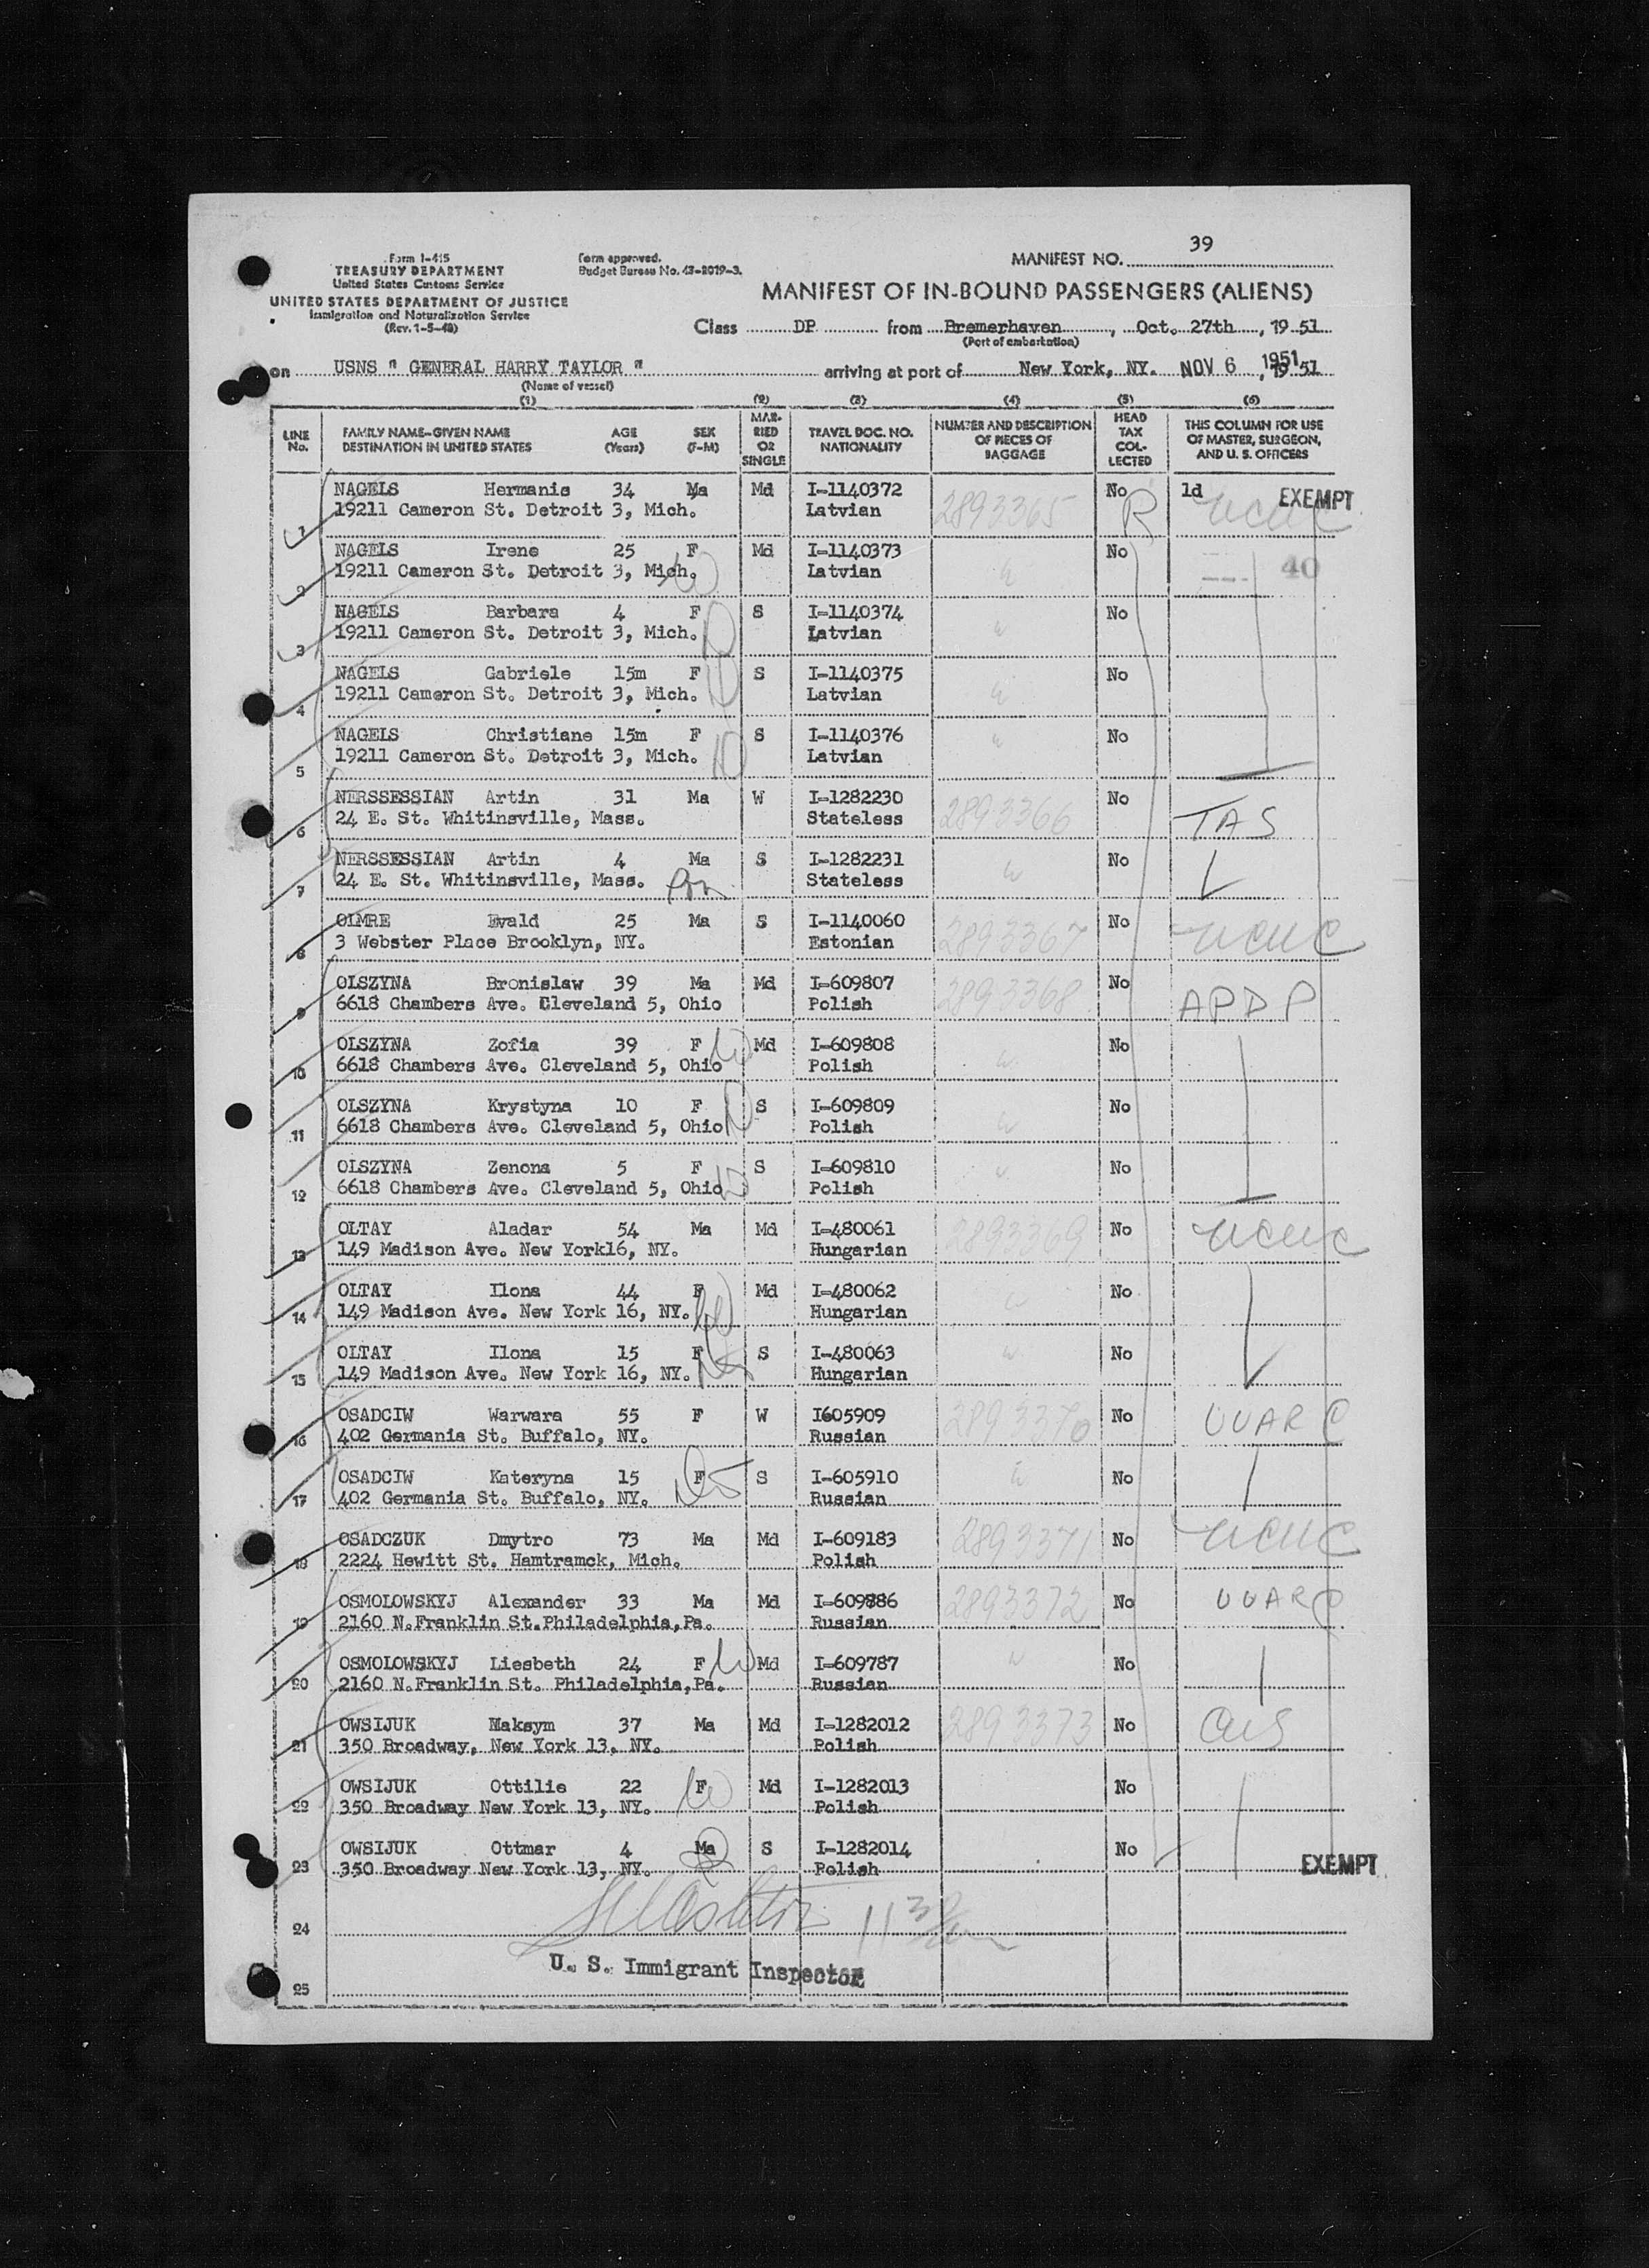 39
Form I-415
TREASURY DEPARTMENT
United States Customs Service
UNITED STATES DEPARTMENT OF JUSTICE
Immigration and Naturalization Service
(Rev. 1-5-48)
Form approved.
Budget Bureau No. 43-R019-3.
MANIFEST NO.
MANIFEST OF IN-BOUND PASSENGERS (ALIENS)
Class DP from Bremerhaven, Oct. 27th, 1951
(Port of embarkation)
on USNS " GENERAL HARRY TAYLOR " arriving at port of New York, NY. NOV 6 1951, 1951
(Name of vessel)
(1) (2) (3) (4) (5) (6)
LINE No. FAMILY NAME-GIVEN NAME DESTINATION IN UNITED STATES AGE (Years) SEX (F-M) MARRIED OR SINGLE TRAVEL DOC. NO. NATIONALITY NUMBER AND DESCRIPTION OF PIECES OF BAGGAGE HEAD TAX COLLECTED THIS COLUMN FOR USE OF MASTER, SURGEON, AND U. S. OFFICERS
NAGELS Hermanis 34 Ma Md I-1140372 No 1d EXEMPT
1 19211 Cameron St. Detroit 3, Mich. Latvian 2893365 R
NAGELS Irene 25 F Md I-1140373 No
2 19211 Cameron St. Detroit 3, Mich. Latvian 40
NAGELS Barbara 4 F S I-1140374 No
3 19211 Cameron St. Detroit 3, Mich. Latvian
NAGELS Gabriele 15m F S I-1140375 No
4 19211 Cameron St. Detroit 3, Mich. Latvian
NAGELS Christiane 15m F S I-1140376 No
5 19211 Cameron St. Detroit 3, Mich. Latvian
NERSSESSIAN Artin 31 Ma W I-1282230 No
6 24 E. St. Whitinsville, Mass. Stateless 2893366 TAS
NERSSESSIAN Artin 4 Ma S I-1282231 No
7 24 E. St. Whitinsville, Mass. Stateless
OLMRE Evald 25 Ma S I-1140060 No
8 3 Webster Place Brooklyn, NY. Estonian 2893367
OLSZYNA Bronislaw 39 Ma Md I-609807 No
9 6618 Chambers Ave. Cleveland 5, Ohio Polish 2893368 APDP
OLSZYNA Zofia 39 F Md I-609808 No
10 6618 Chambers Ave. Cleveland 5, Ohio Polish
OLSZYNA Krystyna 10 F S I-609809 No
11 6618 Chambers Ave. Cleveland 5, Ohio Polish
OLSZYNA Zenona 5 F S I-609810 No
12 6618 Chambers Ave. Cleveland 5, Ohio Polish
OLTAY Aladar 54 Ma Md I-480061 No
13 149 Madison Ave. New York16, NY. Hungarian 2893369
OLTAY Ilona 44 F Md I-480062 No
14 149 Madison Ave. New York 16, NY. Hungarian
OLTAY Ilona 15 F S I-480063 No
15 149 Madison Ave. New York 16, NY. Hungarian
OSADCIW Warwara 55 F W I605909 No
16 402 Germania St. Buffalo, NY. Russian 2893370 UUARC
OSADCIW Kateryna 15 F S I-605910 No
17 402 Germania St. Buffalo, NY. Russian
OSADCZUK Dmytro 73 Ma Md I-609183 No
18 2224 Hewitt St. Hamtramck, Mich. Polish 2893371
OSMOLOWSKYJ Alexander 33 Ma Md I-609886 No
19 2160 N.Franklin St.Philadelphia,Pa. Russian 2893372 UUARC
OSMOLOWSKYJ Liesbeth 24 F Md I-609787 No
20 2160 N.Franklin St. Philadelphia,Pa. Russian
OWSIJUK Maksym 37 Ma Md I-1282012 No
21 350 Broadway, New York 13, NY. Polish 2893373
OWSIJUK Ottilie 22 F Md I-1282013 No
22 350 Broadway New York 13, NY. Polish
OWSIJUK Ottmar 4 Ma S I-1282014 No
23 350 Broadway New York 13, NY. Polish EXEMPT
24
U. S. Immigrant Inspector
25